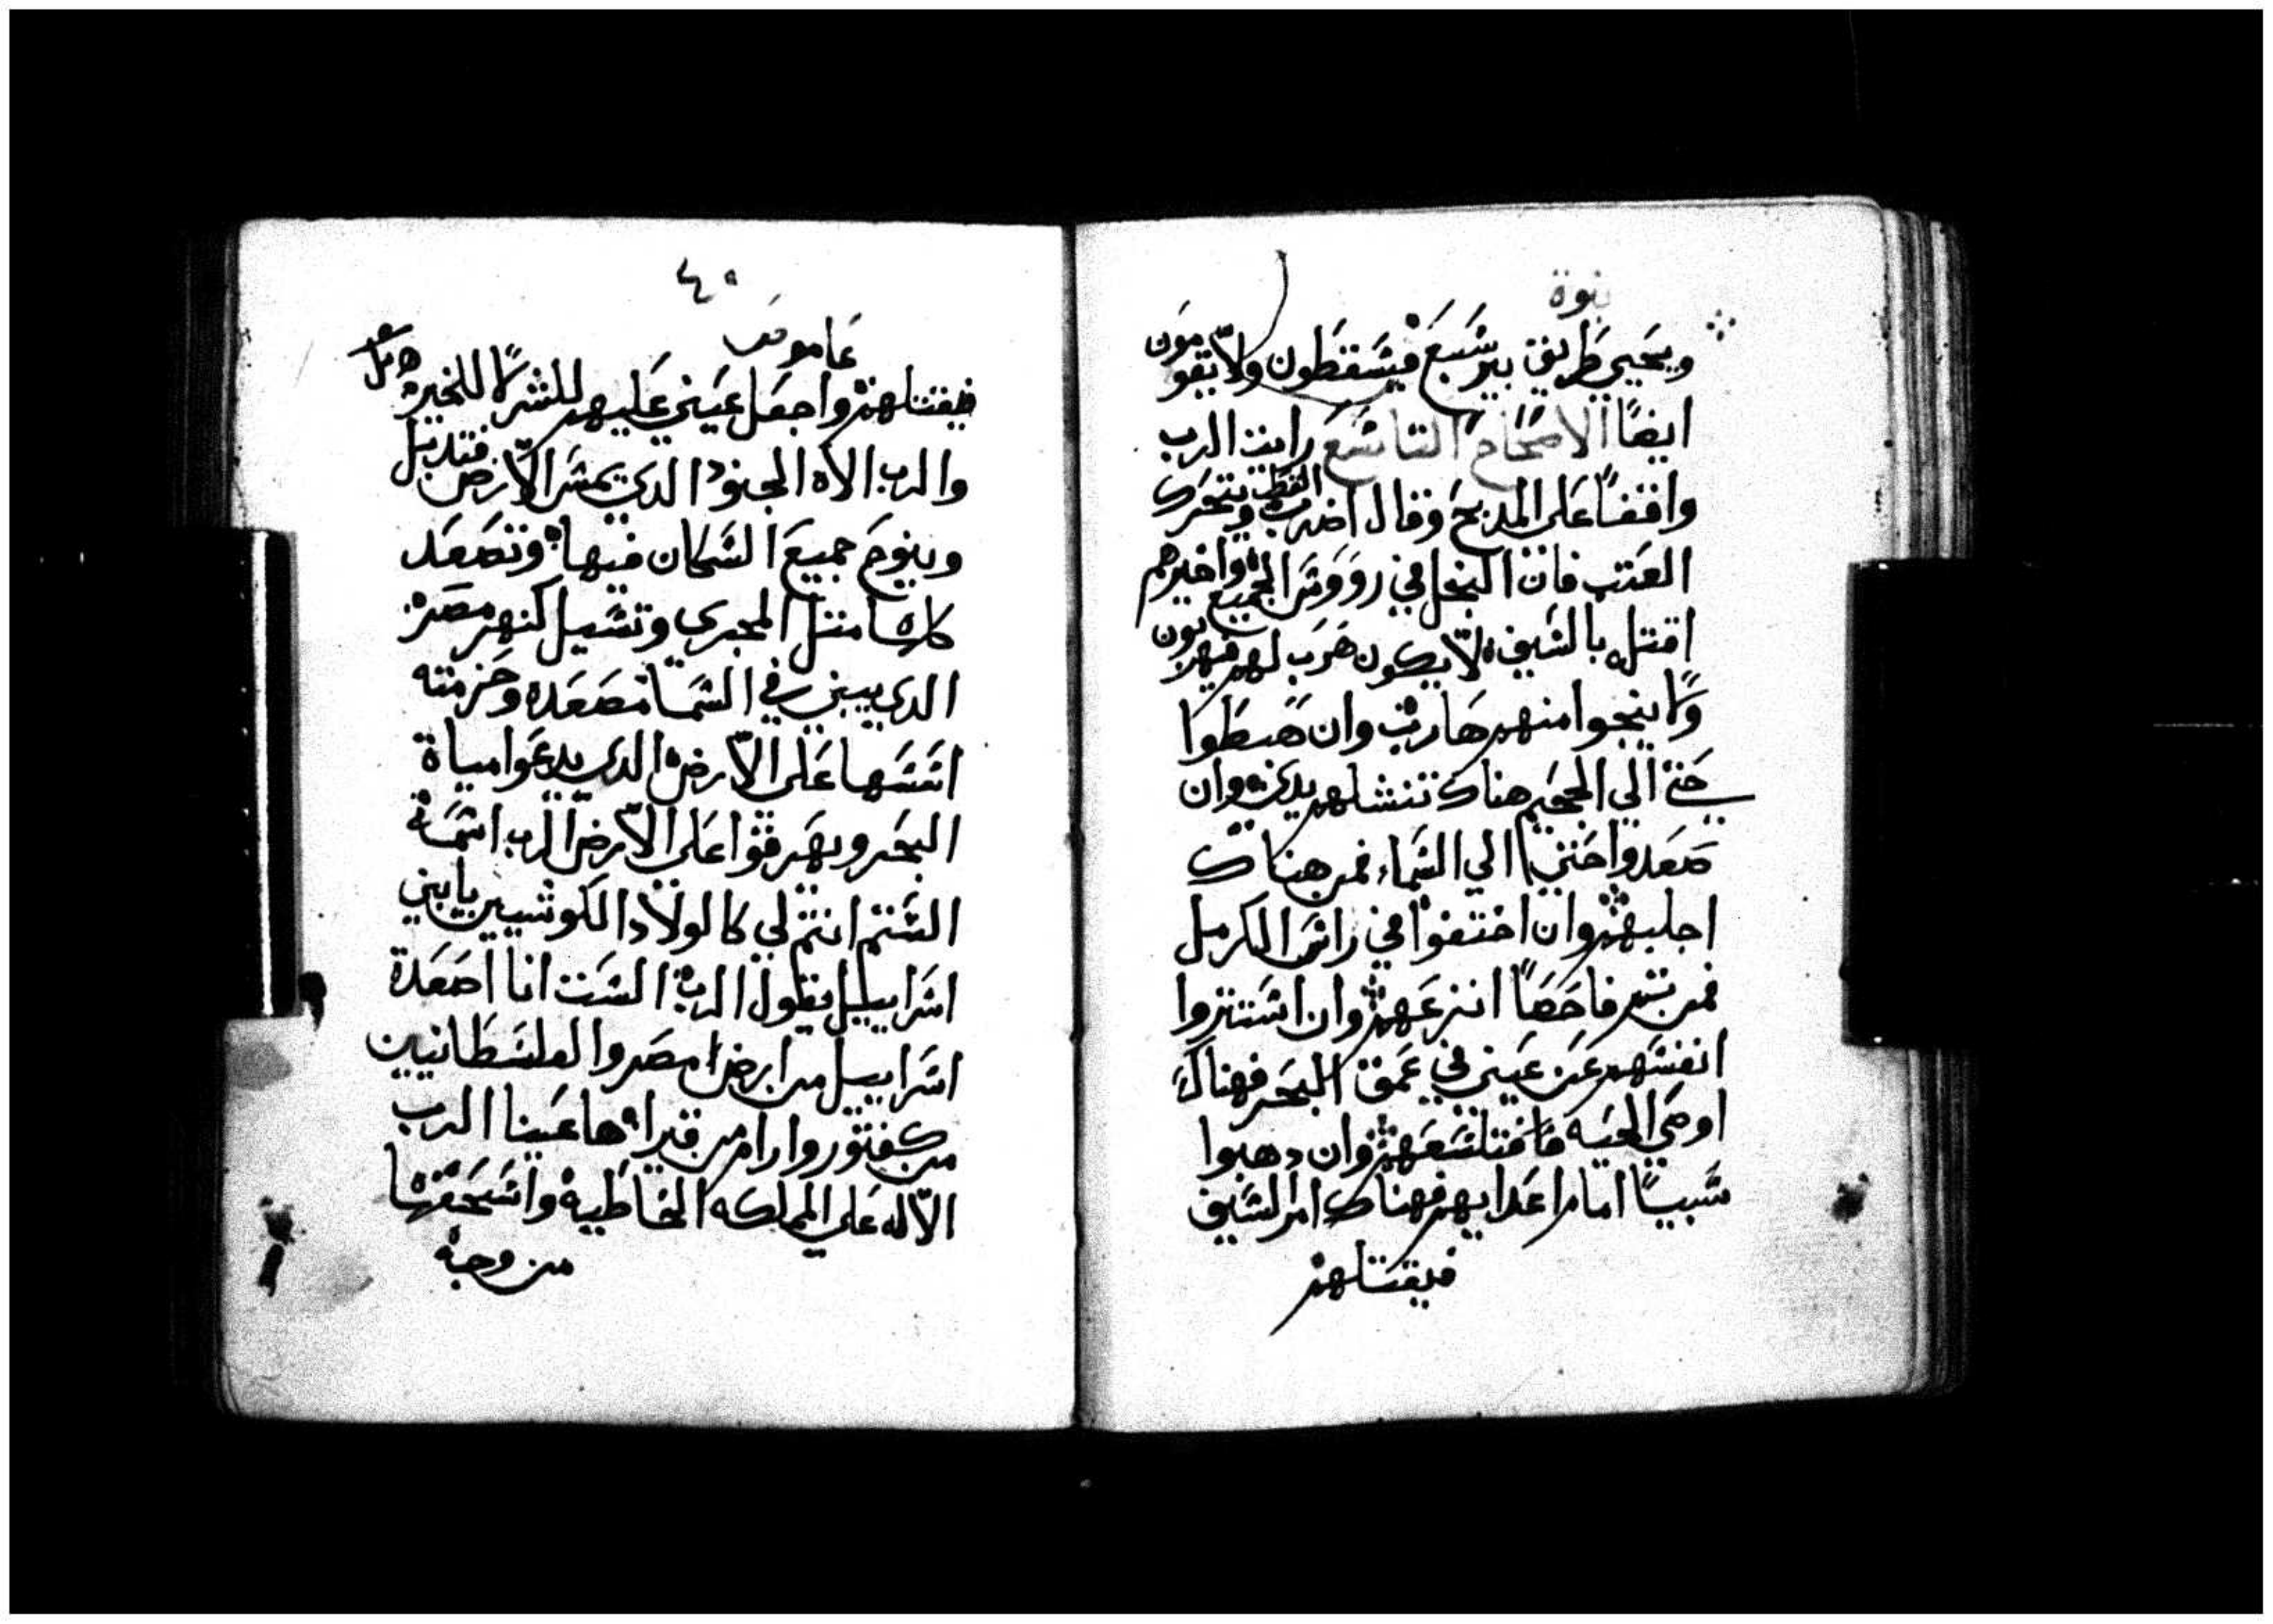 نبوة
ويحيي طريق بير سبع فيسقطون ولا يقومون
ايضًا الاصحاح التاسع رايت الرب
واقفًا على المدبح وقال اضرب القطب وتتحرك
العتب فان البخل في رووس الجميع واخيرهم
اقتل بالسيف لا يكون هرب لهم فيهربون
ولا ينجوا منهم هارب وان هبطوا
حتي الي الجحيم هناك تنشلهم يدي وان
صعدوا حتي الي السماء فمن هناك
اجلبهم وان اختفوا في راس الكرمل
فمن ثم فاحصًا انزعهم وان استتروا
انفسهم عن عيني في عمق البحر فهناك
اوصي الحيه فتلسعهم وان دهبوا
سبيًا امام اعدايهم فهناك امر السيف
فيقتلهم
٤٠
عاموص
فيقتلهم واجعل عيني عليهم للشر لا للخير
والرب الاه الجنود الدي يمس الارض فتدبل
وينوح جميع السكان فيها وتصعد
كلها مثل المجري وتسيل كنهر مصر
الدي يبني في السما مصعده وحزمته
اسسها على الارض الدي يدعوا مياة
البحر ويهرقوا على الارض الرب اسمه
الستم انتم لي كالولاد الكوشيين يا بني
اسراييل يقول الرب الست انا اصعدة
اسراييل من ارض مصر والفلسطانيين
من كفتور وارام من قيرا ها عينا الرب
الاله على المملكه الخاطيه واسحقها
من وجه